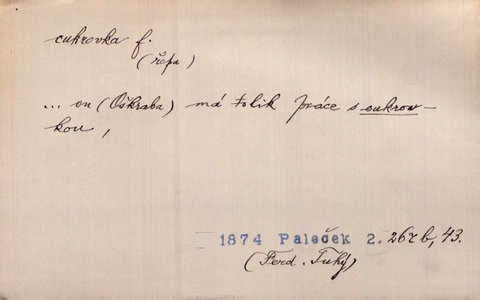 cukrovka f.
(řepa)
... on (Oškraba) má tolik práce s cukrov-
kou,
1874 Paleček 2. 267b, 43.
(Ferd. Tuhý)